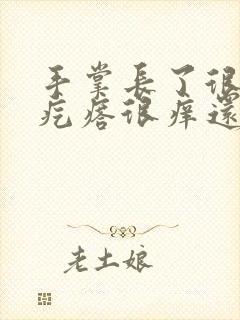 手掌長了很
疙瘩很癢還
老土娘